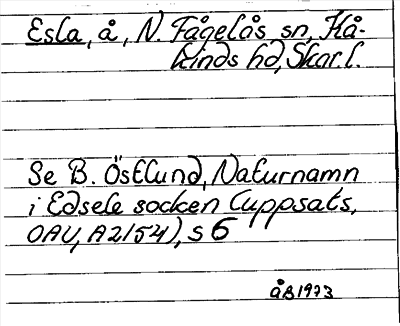 Esla, å, N. Fågelås sn, Kå-
kinds hd, Skar. l.
Se B. Östlund, Naturnamn
i Edsele socken (uppsats,
OAU, A2154), s 6
åB1973